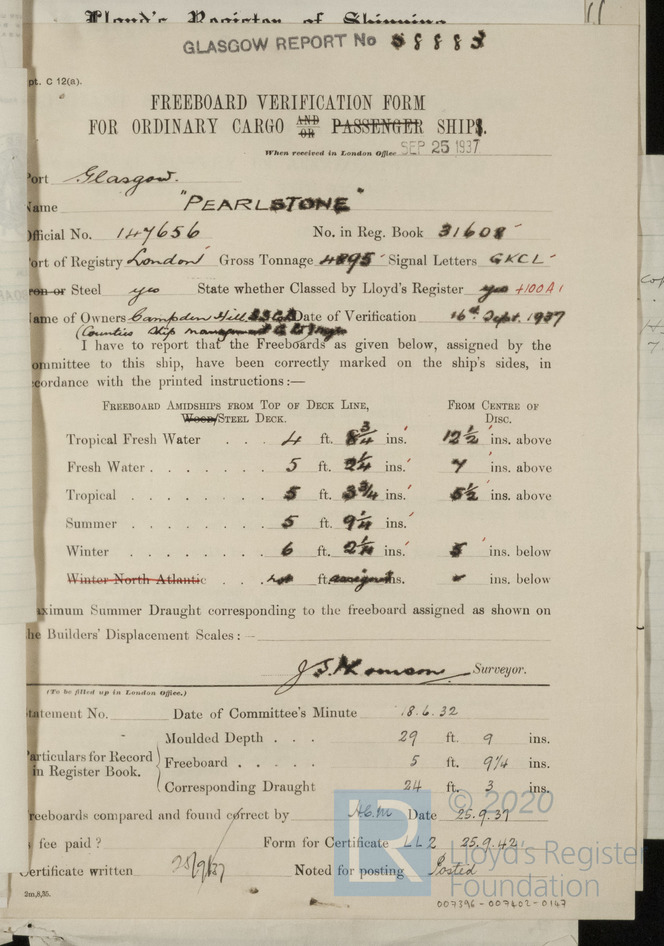 Lloyd's Register of Shipping
GLASGOW REPORT No 58883
pt. C 12(a).
FREEBOARD VERIFICATION FORM
FOR ORDINARY CARGO AND OR PASSENGER SHIPS.
When received in London Office SEP 25 1937
ort Glasgow.
ame "PEARLSTONE"
fficial No. 147656 No. in Reg. Book 31608
ort of Registry London Gross Tonnage 4895 Signal Letters GKCL
ron or Steel yes State whether Classed by Lloyd's Register yes +100A1
ame of Owners Campden Hill Date of Verification 16th Sept. 1937
(Counties Ship Management
I have to report that the Freeboards as given below, assigned by the
ommittee to this ship, have been correctly marked on the ship's sides, in
ccordance with the printed instructions:—
FREEBOARD AMIDSHIPS FROM TOP OF DECK LINE, FROM CENTRE OF
WOOD/STEEL DECK. DISC.
Tropical Fresh Water . . . 4 ft. 8 3/4 ins. 12 1/2 ins. above
Fresh Water . . . . . . 5 ft. 2 1/4 ins. 7 ins. above
Tropical . . . . . . . 5 ft. 3 3/4 ins. 5 1/2 ins. above
Summer . . . . . . . 5 ft. 9 1/4 ins.
Winter . . . . . . . 6 ft. 2 1/4 ins. 5 ins. below
Winter North Atlantic . . . not ft. assigned ins. ins. below
aximum Summer Draught corresponding to the freeboard assigned as shown on
he Builders' Displacement Scales: -
J.S. Thomson Surveyor.
(To be filled up in London Office.)
tatement No. Date of Committee's Minute 18.6.32
Moulded Depth . . . 29 ft. 9 ins.
articulars for Record in Register Book. Freeboard . . . . . 5 ft. 9 1/4 ins.
Corresponding Draught 24 ft. 3 ins.
reeboards compared and found correct by Date 25.9.37
fee paid? Form for Certificate LL 2 25.9.42
ertificate written 25/9/37 Noted for posting Posted
2m,8,35.
© 2020
LR
Lloyd's Register
Foundation
007396-007402-0147